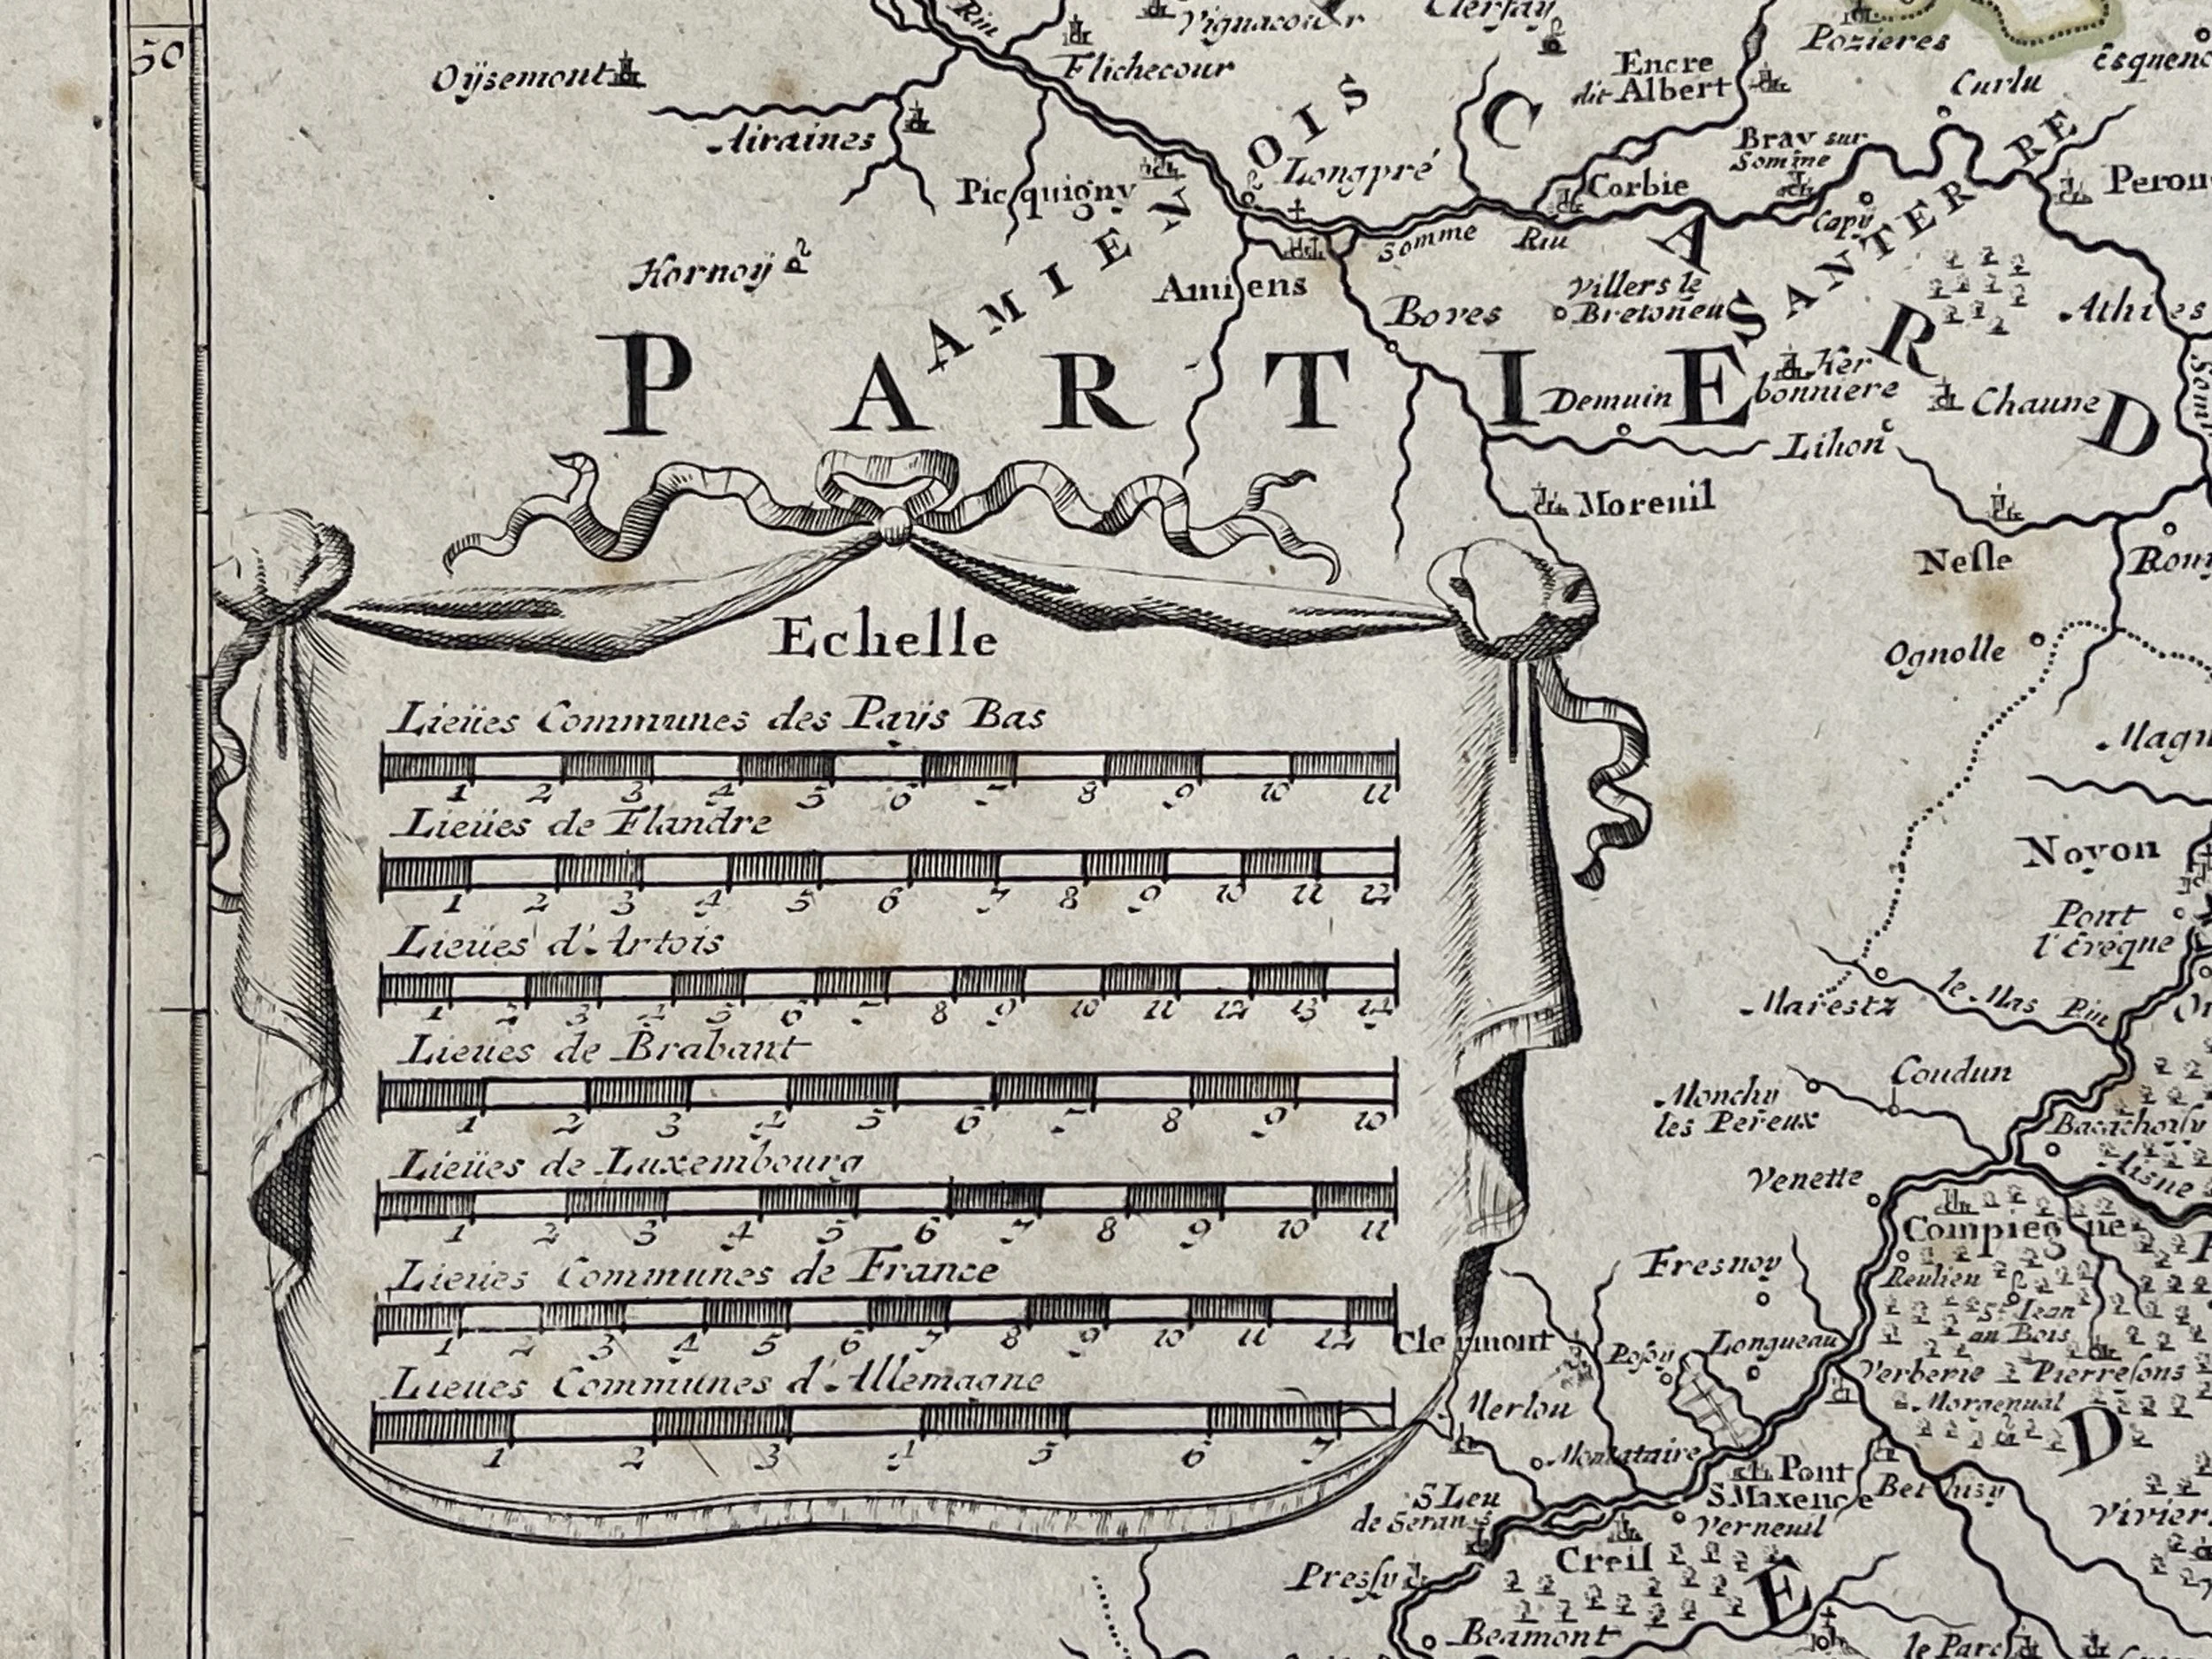 50
Oÿsemont
Airaines
Flichecour
Vignacour
Encre
dit Albert
Pozieres
Curlu
Picquigny
Longpré
Corbie
Bray sur
Somme
Capÿ
Hornoÿ
AMIENOIS
Amiens
Somme Riu
Boves
Villers le
Bretoneu
SANTERRE
Athies
PARTIE
CARD
Demuin
Her
bonniere
Chaune
Lihon
Moreuil
Nesle
Ognolle
Echelle
Lieües Communes des Païjs Bas
1 2 3 4 5 6 7 8 9 10 11
Lieües de Flandre
1 2 3 4 5 6 7 8 9 10 11 12
Lieües d'Artois
1 2 3 4 5 6 7 8 9 10 11 12 13 14
Lieües de Brabant
1 2 3 4 5 6 7 8 9 10
Lieües de Luxembourg
1 2 3 4 5 6 7 8 9 10 11
Lieües Communes de France
1 2 3 4 5 6 7 8 9 10 11 12
Lieues Communes d'Allemagne
1 2 3 4 5 6 7
Noyon
Pont
l'Evêque
Marestz
le Mas Riu
Coudun
Monchy
les Pereux
Venette
Compiegne
Fresnoy
S.t Jean
au Bois
Clermont
Longueau
Verberie
Pierrefons
Morgenual
Merlou
Montataire
Pont
S Maxence
Verneuil
S Leu
de Seran
Creil
Pressy
Beamont
le Parc
D
E